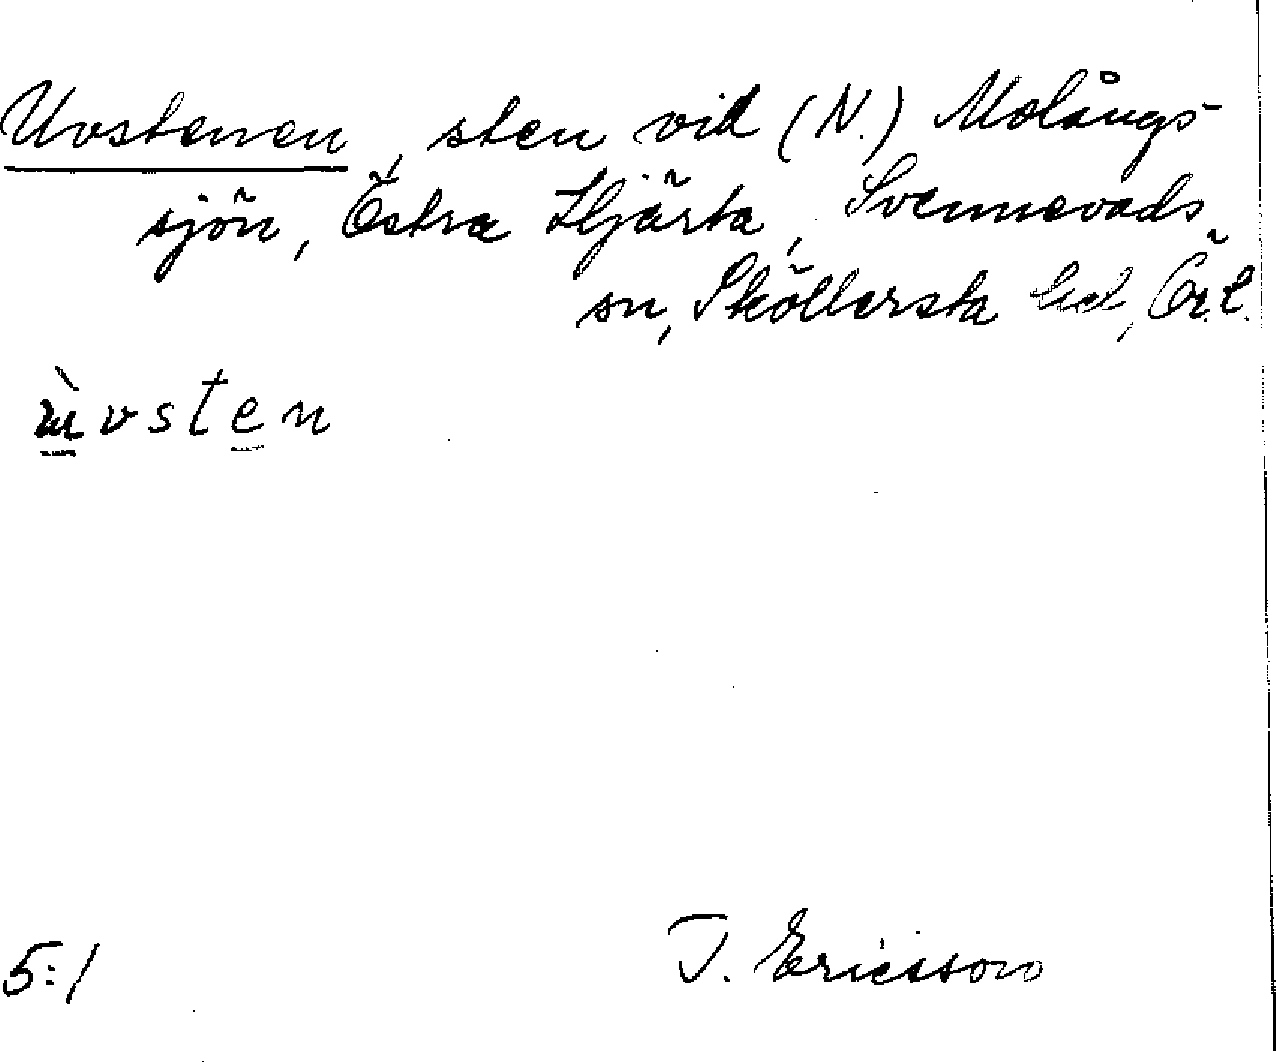 Uvstenen, sten vid (N.) Molångs-
sjön, Östra Hjärta, Svennevads
sn, Sköllersta hd, Ör.l.
ùvsten
5:1
T. Ericsson